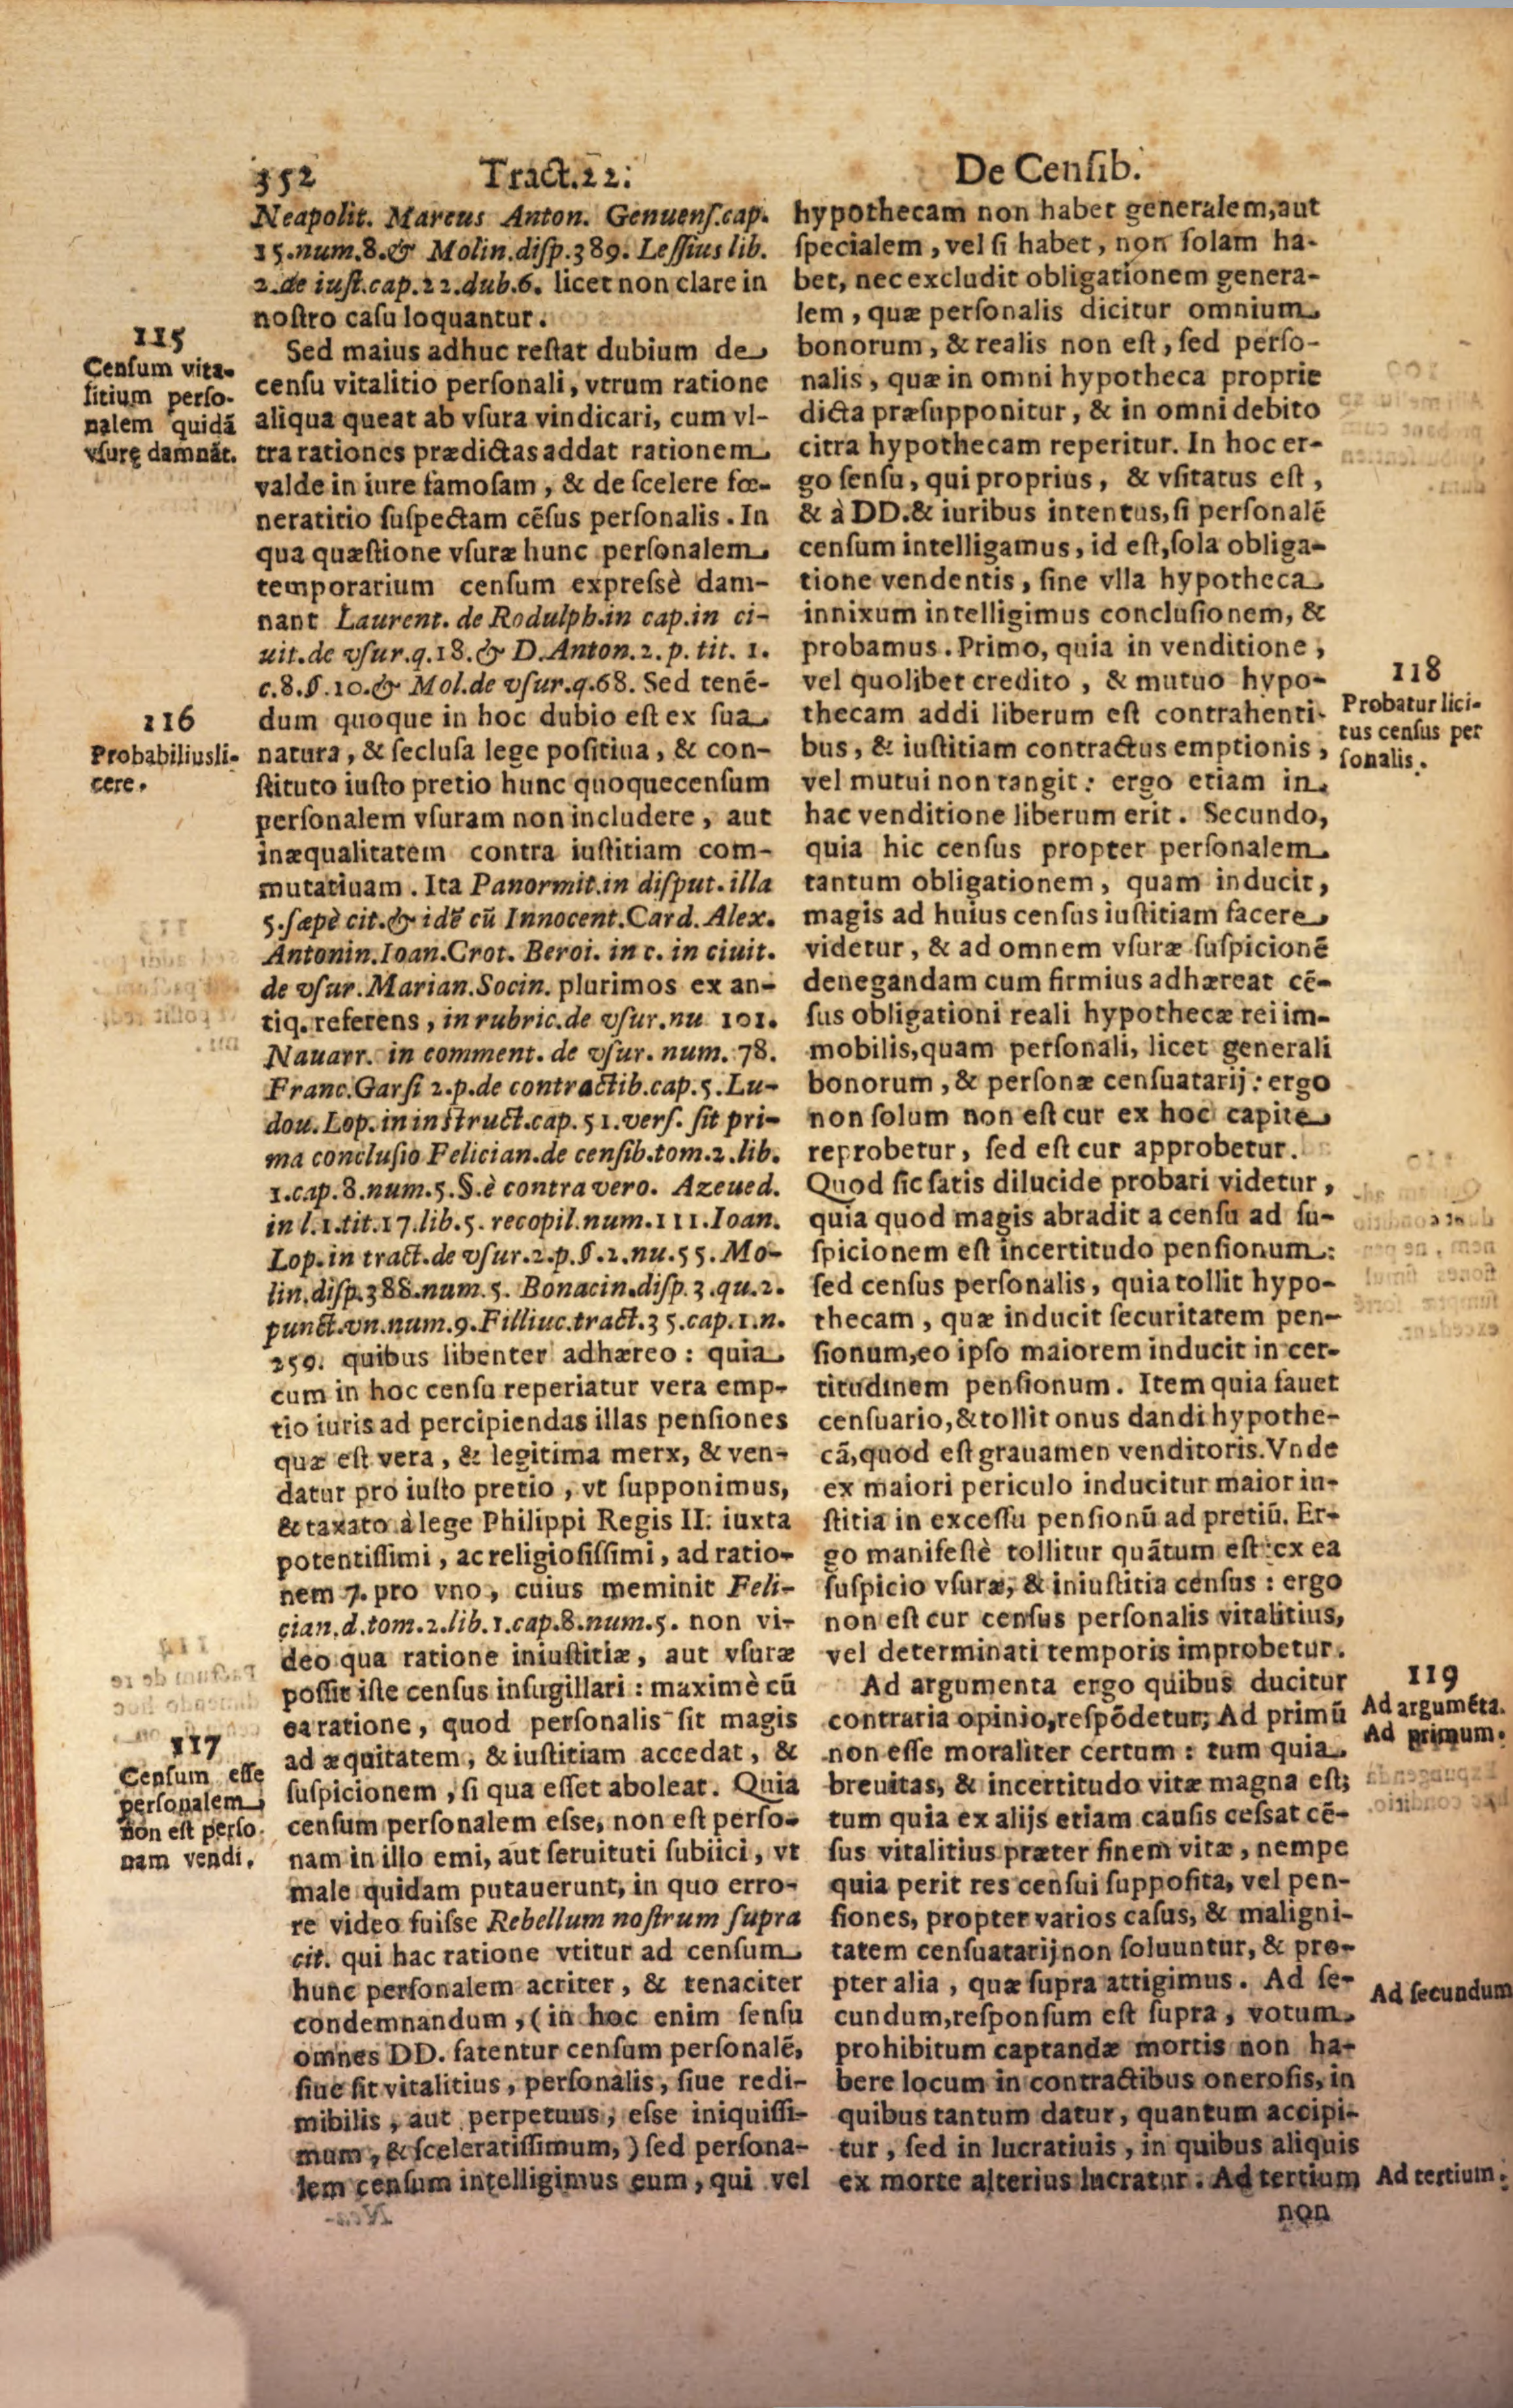 352 Tract.22: De Censib.
Neapolit. Marcus Anton. Genuenſ.cap.
15.num.8.& Molin.diſp.389. Leſſius lib.
2.de iuſt.cap.22.dub.6. licet non clare in
noſtro caſu loquantur.
115
Cenſum vita-
litium perſo-
nalem quidã
vſurę damnāt.
Sed maius adhuc reſtat dubium de
cenſu vitalitio perſonali, vtrum ratione
aliqua queat ab vſura vindicari, cum vl-
tra rationes prædictas addat rationem
valde in iure famoſam, & de ſcelere fœ-
neratitio ſuſpectam cēſus perſonalis. In
qua quæſtione vſuræ hunc perſonalem
temporarium cenſum expreſsè dam-
nant Laurent. de Rodulph.in cap.in ci-
uit.de vſur.q.18.& D.Anton.2.p. tit. 1.
c.8.§.10.& Mol.de vſur.q.68. Sed tenē-
116
Probabilius li-
cere.
dum quoque in hoc dubio eſt ex ſua
natura, & ſecluſa lege poſitiua, & con-
ſtituto iuſto pretio hunc quoque cenſum
perſonalem vſuram non includere, aut
inæqualitatem contra iuſtitiam com-
mutatiuam. Ita Panormit.in diſput.illa
5.ſæpè cit.& idē cū Innocent.Card.Alex.
Antonin.Ioan.Crot. Beroi. in c. in ciuit.
de vſur.Marian.Socin. plurimos ex an-
tiq. referens, in rubric.de vſur.nu 101.
Nauarr. in comment. de vſur. num. 78.
Franc.Garſi 2.p.de contractib.cap.5.Lu-
dou.Lop.in inſtruct.cap.51.verſ. ſit pri-
ma concluſio Felician.de cenſib.tom.2.lib.
1.cap.8.num.5.§.è contra vero. Azeued.
in l.1.tit.17.lib.5. recopil.num.111.Ioan.
Lop.in tract.de vſur.2.p.§.2.nu.55.Mo-
lin.diſp.388.num.5. Bonacin.diſp.3.qu.2.
punct.vn.num.9.Filliuc.tract.35.cap.1.n.
259. quibus libenter adhæreo: quia
cum in hoc cenſu reperiatur vera emp-
tio iuris ad percipiendas illas penſiones
quæ eſt vera, & legitima merx, & ven-
datur pro iuſto pretio, vt ſupponimus,
& taxato à lege Philippi Regis II. iuxta
potentiſſimi, ac religioſiſſimi, ad ratio-
nem 7. pro vno, cuius meminit Feli-
cian.d.tom.2.lib.1.cap.8.num.5. non vi-
deo qua ratione iniuſtitiæ, aut vſuræ
poſſit iſte cenſus inſugillari: maximè cū
ea ratione, quod perſonalis ſit magis
117
Cenſum eſſe
perſonalem
non eſt perſo-
nam vendi.
ad æquitatem, & iuſtitiam accedat, &
ſuſpicionem, ſi qua eſſet aboleat. Quia
cenſum perſonalem eſſe, non eſt perſo-
nam in illo emi, aut ſeruituti ſubiici, vt
male quidam putauerunt, in quo erro-
re video fuiſse Rebellum noſtrum ſupra
cit. qui hac ratione vtitur ad cenſum
hunc perſonalem acriter, & tenaciter
condemnandum, (in hoc enim ſenſu
omnes DD. fatentur cenſum perſonalē,
ſiue ſit vitalitius, perſonalis, ſiue redi-
mibilis, aut perpetuus, eſse iniquiſſi-
mum, & ſceleratiſſimum,) ſed perſona-
lem cenſum intelligimus eum, qui vel
hypothecam non habet generalem, aut
ſpecialem, vel ſi habet, non ſolam ha-
bet, nec excludit obligationem genera-
lem, quæ perſonalis dicitur omnium
bonorum, & realis non eſt, ſed perſo-
nalis, quæ in omni hypotheca proprie
dicta præſupponitur, & in omni debito
citra hypothecam reperitur. In hoc er-
go ſenſu, qui proprius, & vſitatus eſt,
& à DD.& iuribus intentus, ſi perſonalē
cenſum intelligamus, id eſt, ſola obliga-
tione vendentis, ſine vlla hypotheca
innixum intelligimus concluſionem, &
probamus. Primo, quia in venditione,
118
Probatur lici-
tus cenſus per
ſonalis.
vel quolibet credito, & mutuo hypo-
thecam addi liberum eſt contrahenti-
bus, & iuſtitiam contractus emptionis,
vel mutui non tangit: ergo etiam in
hac venditione liberum erit. Secundo,
quia hic cenſus propter perſonalem
tantum obligationem, quam inducit,
magis ad huius cenſus iuſtitiam facere
videtur, & ad omnem vſuræ ſuſpicionē
denegandam cum firmius adhæreat cē-
ſus obligationi reali hypothecæ rei im-
mobilis, quam perſonali, licet generali
bonorum, & perſonæ cenſuatarij: ergo
non ſolum non eſt cur ex hoc capite
reprobetur, ſed eſt cur approbetur.
Quod ſic ſatis dilucide probari videtur,
quia quod magis abradit a cenſu ad ſu-
ſpicionem eſt incertitudo penſionum:
ſed cenſus perſonalis, quia tollit hypo-
thecam, quæ inducit ſecuritatem pen-
ſionum, eo ipſo maiorem inducit in cer-
titudinem penſionum. Item quia fauet
cenſuario, & tollit onus dandi hypothe-
cã, quod eſt grauamen venditoris. Vnde
ex maiori periculo inducitur maior in-
ſtitia in exceſſu penſionū ad pretiū. Er-
go manifeſtè tollitur quātum eſt ex ea
ſuſpicio vſuræ, & iniuſtitia cenſus: ergo
non eſt cur cenſus perſonalis vitalitius,
vel determinati temporis improbetur.
119
Ad argumēta.
Ad primum.
Ad argumenta ergo quibus ducitur
contraria opinio, reſpōdetur; Ad primū
non eſſe moraliter certum: tum quia
breuitas, & incertitudo vitæ magna eſt;
tum quia ex alijs etiam cauſis ceſsat cē-
ſus vitalitius præter finem vitæ, nempe
quia perit res cenſui ſuppoſita, vel pen-
ſiones, propter varios caſus, & maligni-
tatem cenſuatarij non ſoluuntur, & pro-
pter alia, quæ ſupra attigimus. Ad ſe-
Ad ſecundum
cundum, reſponſum eſt ſupra, votum
prohibitum captandæ mortis non ha-
bere locum in contractibus oneroſis, in
quibus tantum datur, quantum accipi-
tur, ſed in lucratiuis, in quibus aliquis
ex morte alterius lucratur. Ad tertium
Ad tertium.
non